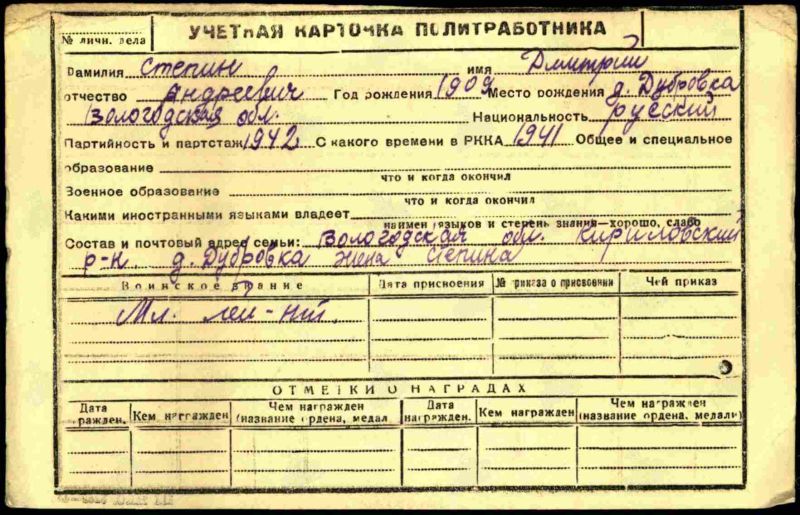 УЧЕТНАЯ КАРТОЧКА ПОЛИТРАБОТНИКА
№ личн. дела
Фамилия Степин имя Дмитрий
отчество Андреевич Год рождения 1909 Место рождения д. Дубровка
Вологодская обл. Национальность русский
Партийность и партстаж 1942 С какого времени в РККА 1941 Общее и специальное
образование
что и когда окончил
Военное образование
что и когда окончил
Какими иностранными языками владеет
наимен языков и степень знания—хорошо, слабо
Состав и почтовый адрес семьи: Вологодская обл. Кириловский
р-н. д. Дубровка жена Степина
Воинское звание Дата присвоения № приказа о присвоении Чей приказ
Мл. лей-нт.
ОТМЕТКИ О НАГРАДАХ
Дата награжден. Кем награжден Чем награжден (название ордена, медал Дата награжден. Кем награжден Чем награжден (название ордена, медали)